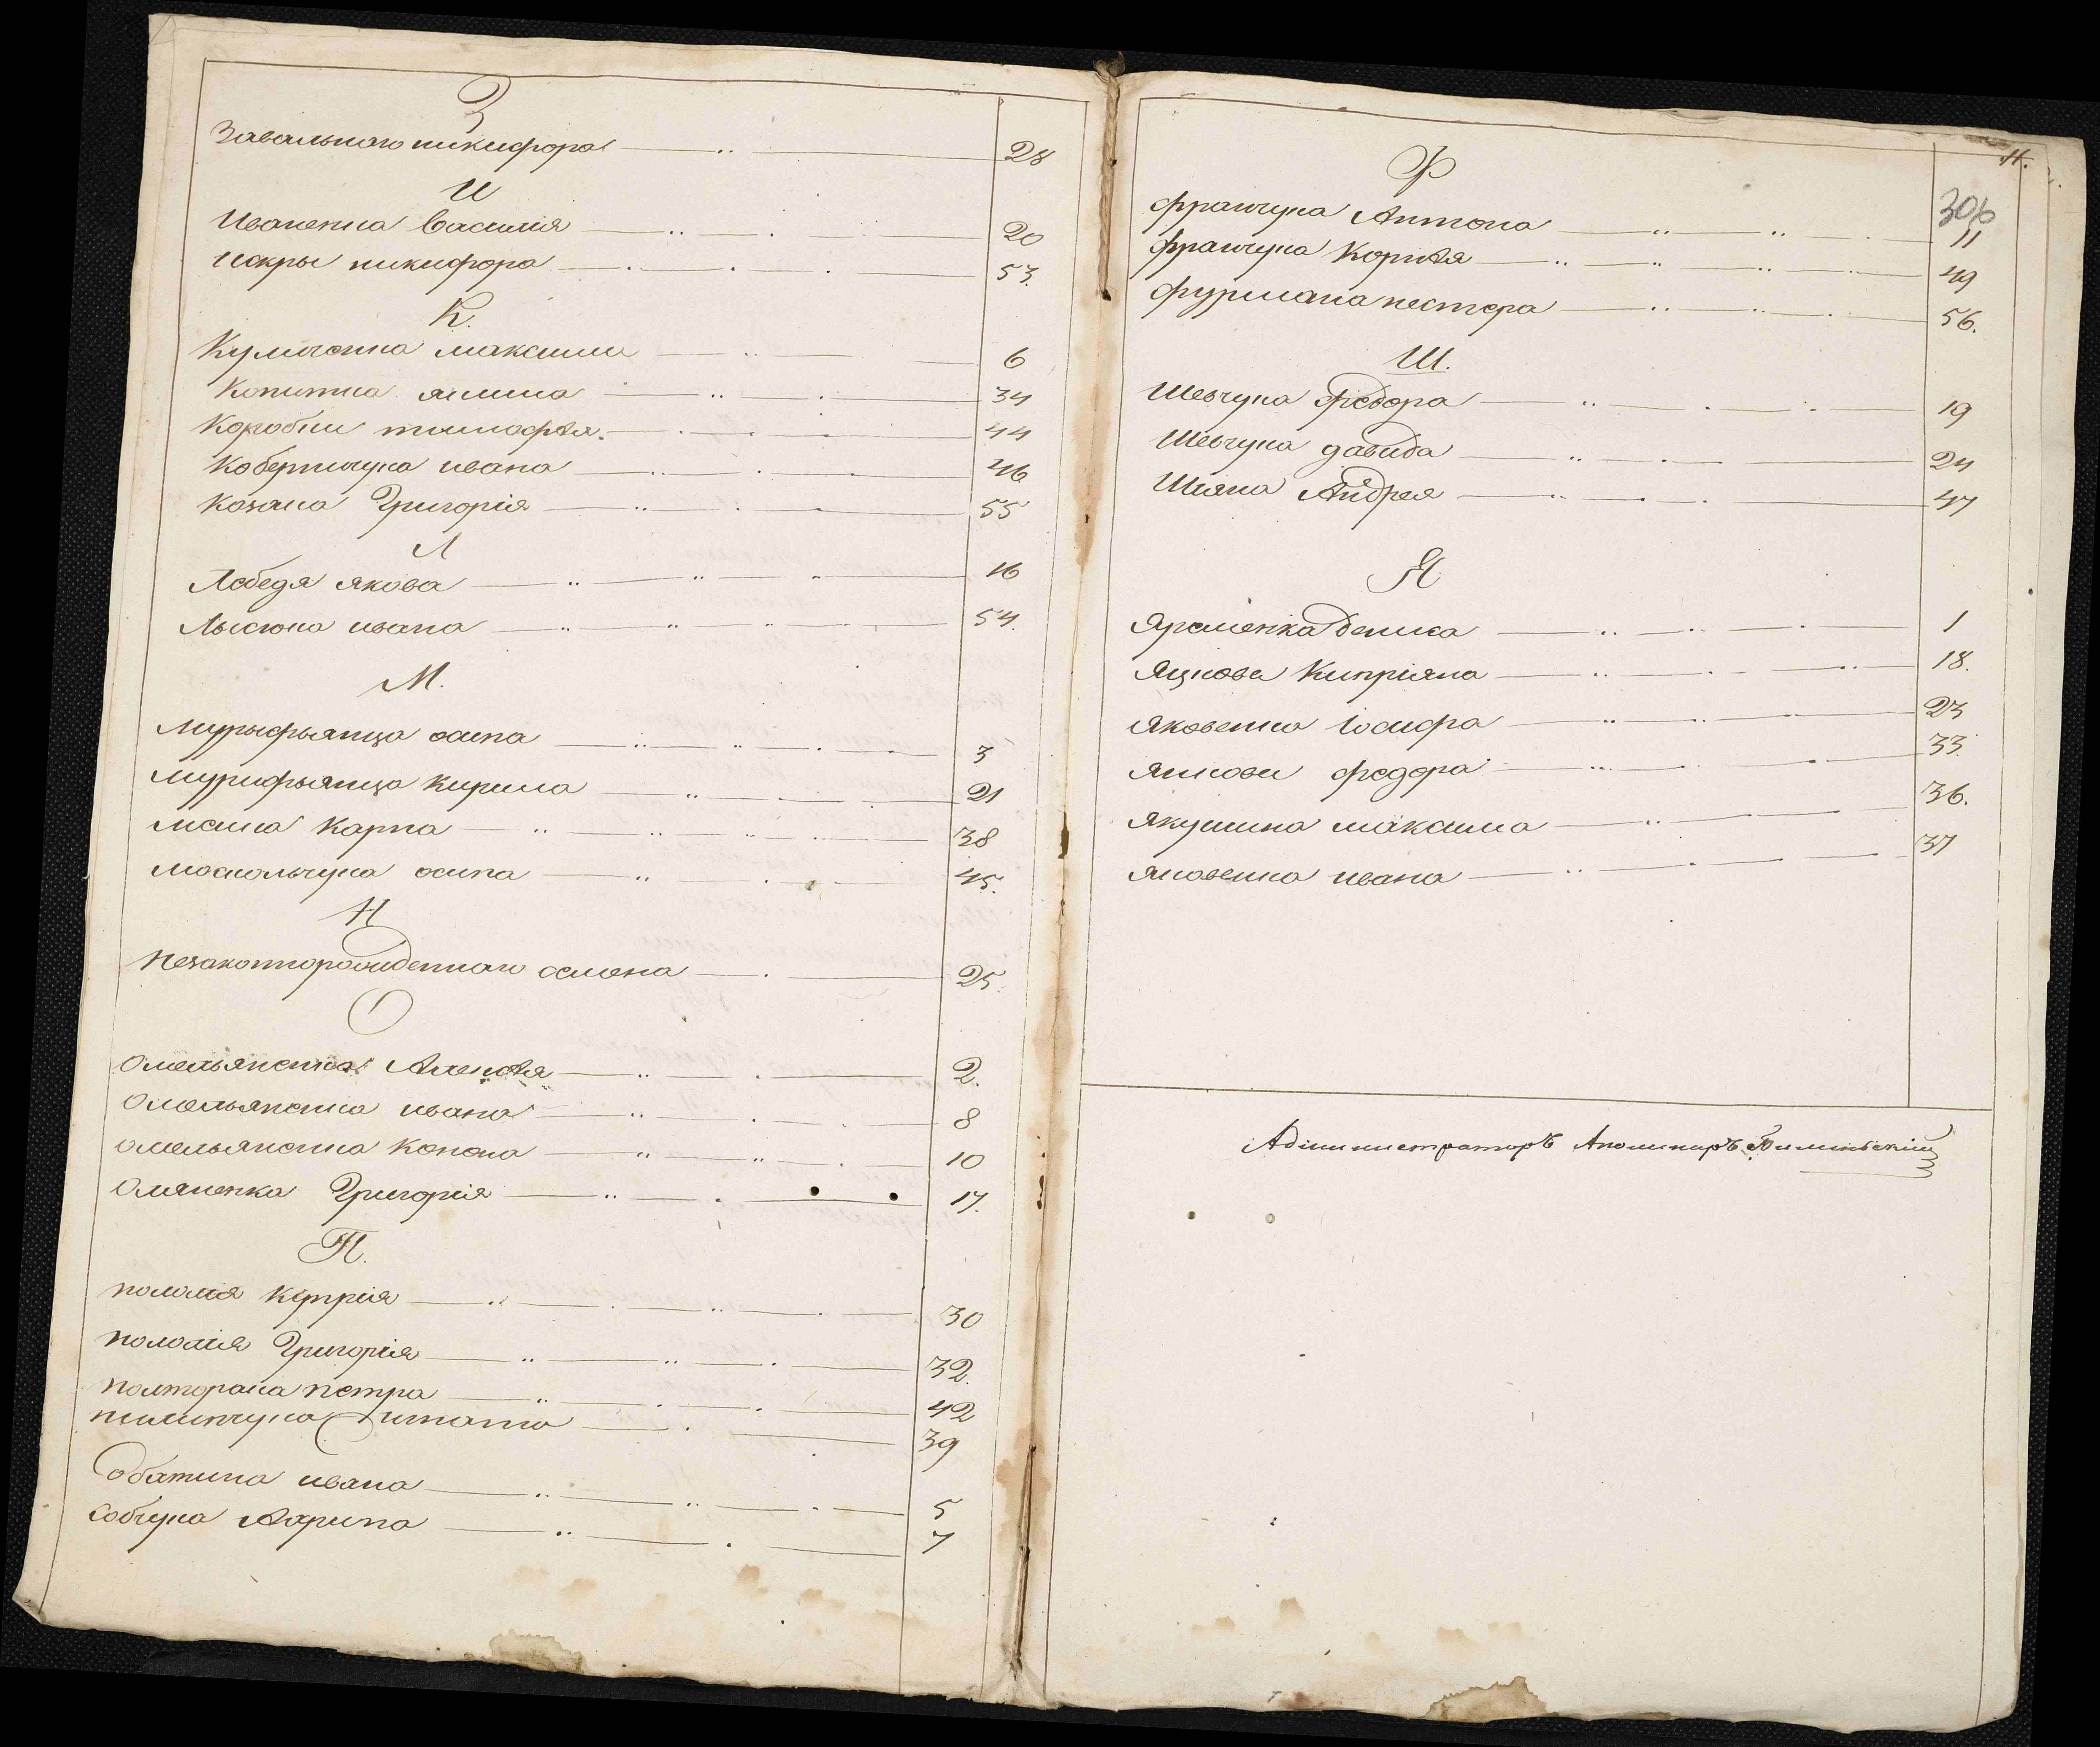 З
Завального никифора 28
И
Иваненка Василія 20
Искры никифора 53.
К.
Куличенка максима 6
Копитка якима 34
Коробки тимофѣя. 44
Коберничука ивана 46
Козака Григорія 55
Л
Лебедя якова 16
Лысюка ивана 54.
М.
мурыфьянца осипа 3
мурифьянца Кирила 21
Карпа 38
москальчука осипа 45.
Н
незаконнорожденнаго семена 25.
О
Омельяненка Алексѣя 2.
Омельяненка ивана 8
омельяненка Конона 10
Григорія 17.
П.
поломія 30
поломія Григорія 32.
полторака петра 42
пилипчука игната 39
Собатина ивана 5
Собчука 7
4.
306
Ф
франчука Антона 11
франчука Корнѣя 49
фурмана нестера 56.
Ш.
Шевчука Федора 19
Шевчука давида 24
Шияна Андрея 47
Я
Яременка дениса 1
Яцкова Кипріяна 18.
Яковенка Іосифа 23
федора 33.
якушина максима 36.
яковенка ивана 37
Администраторъ Аполинаръ